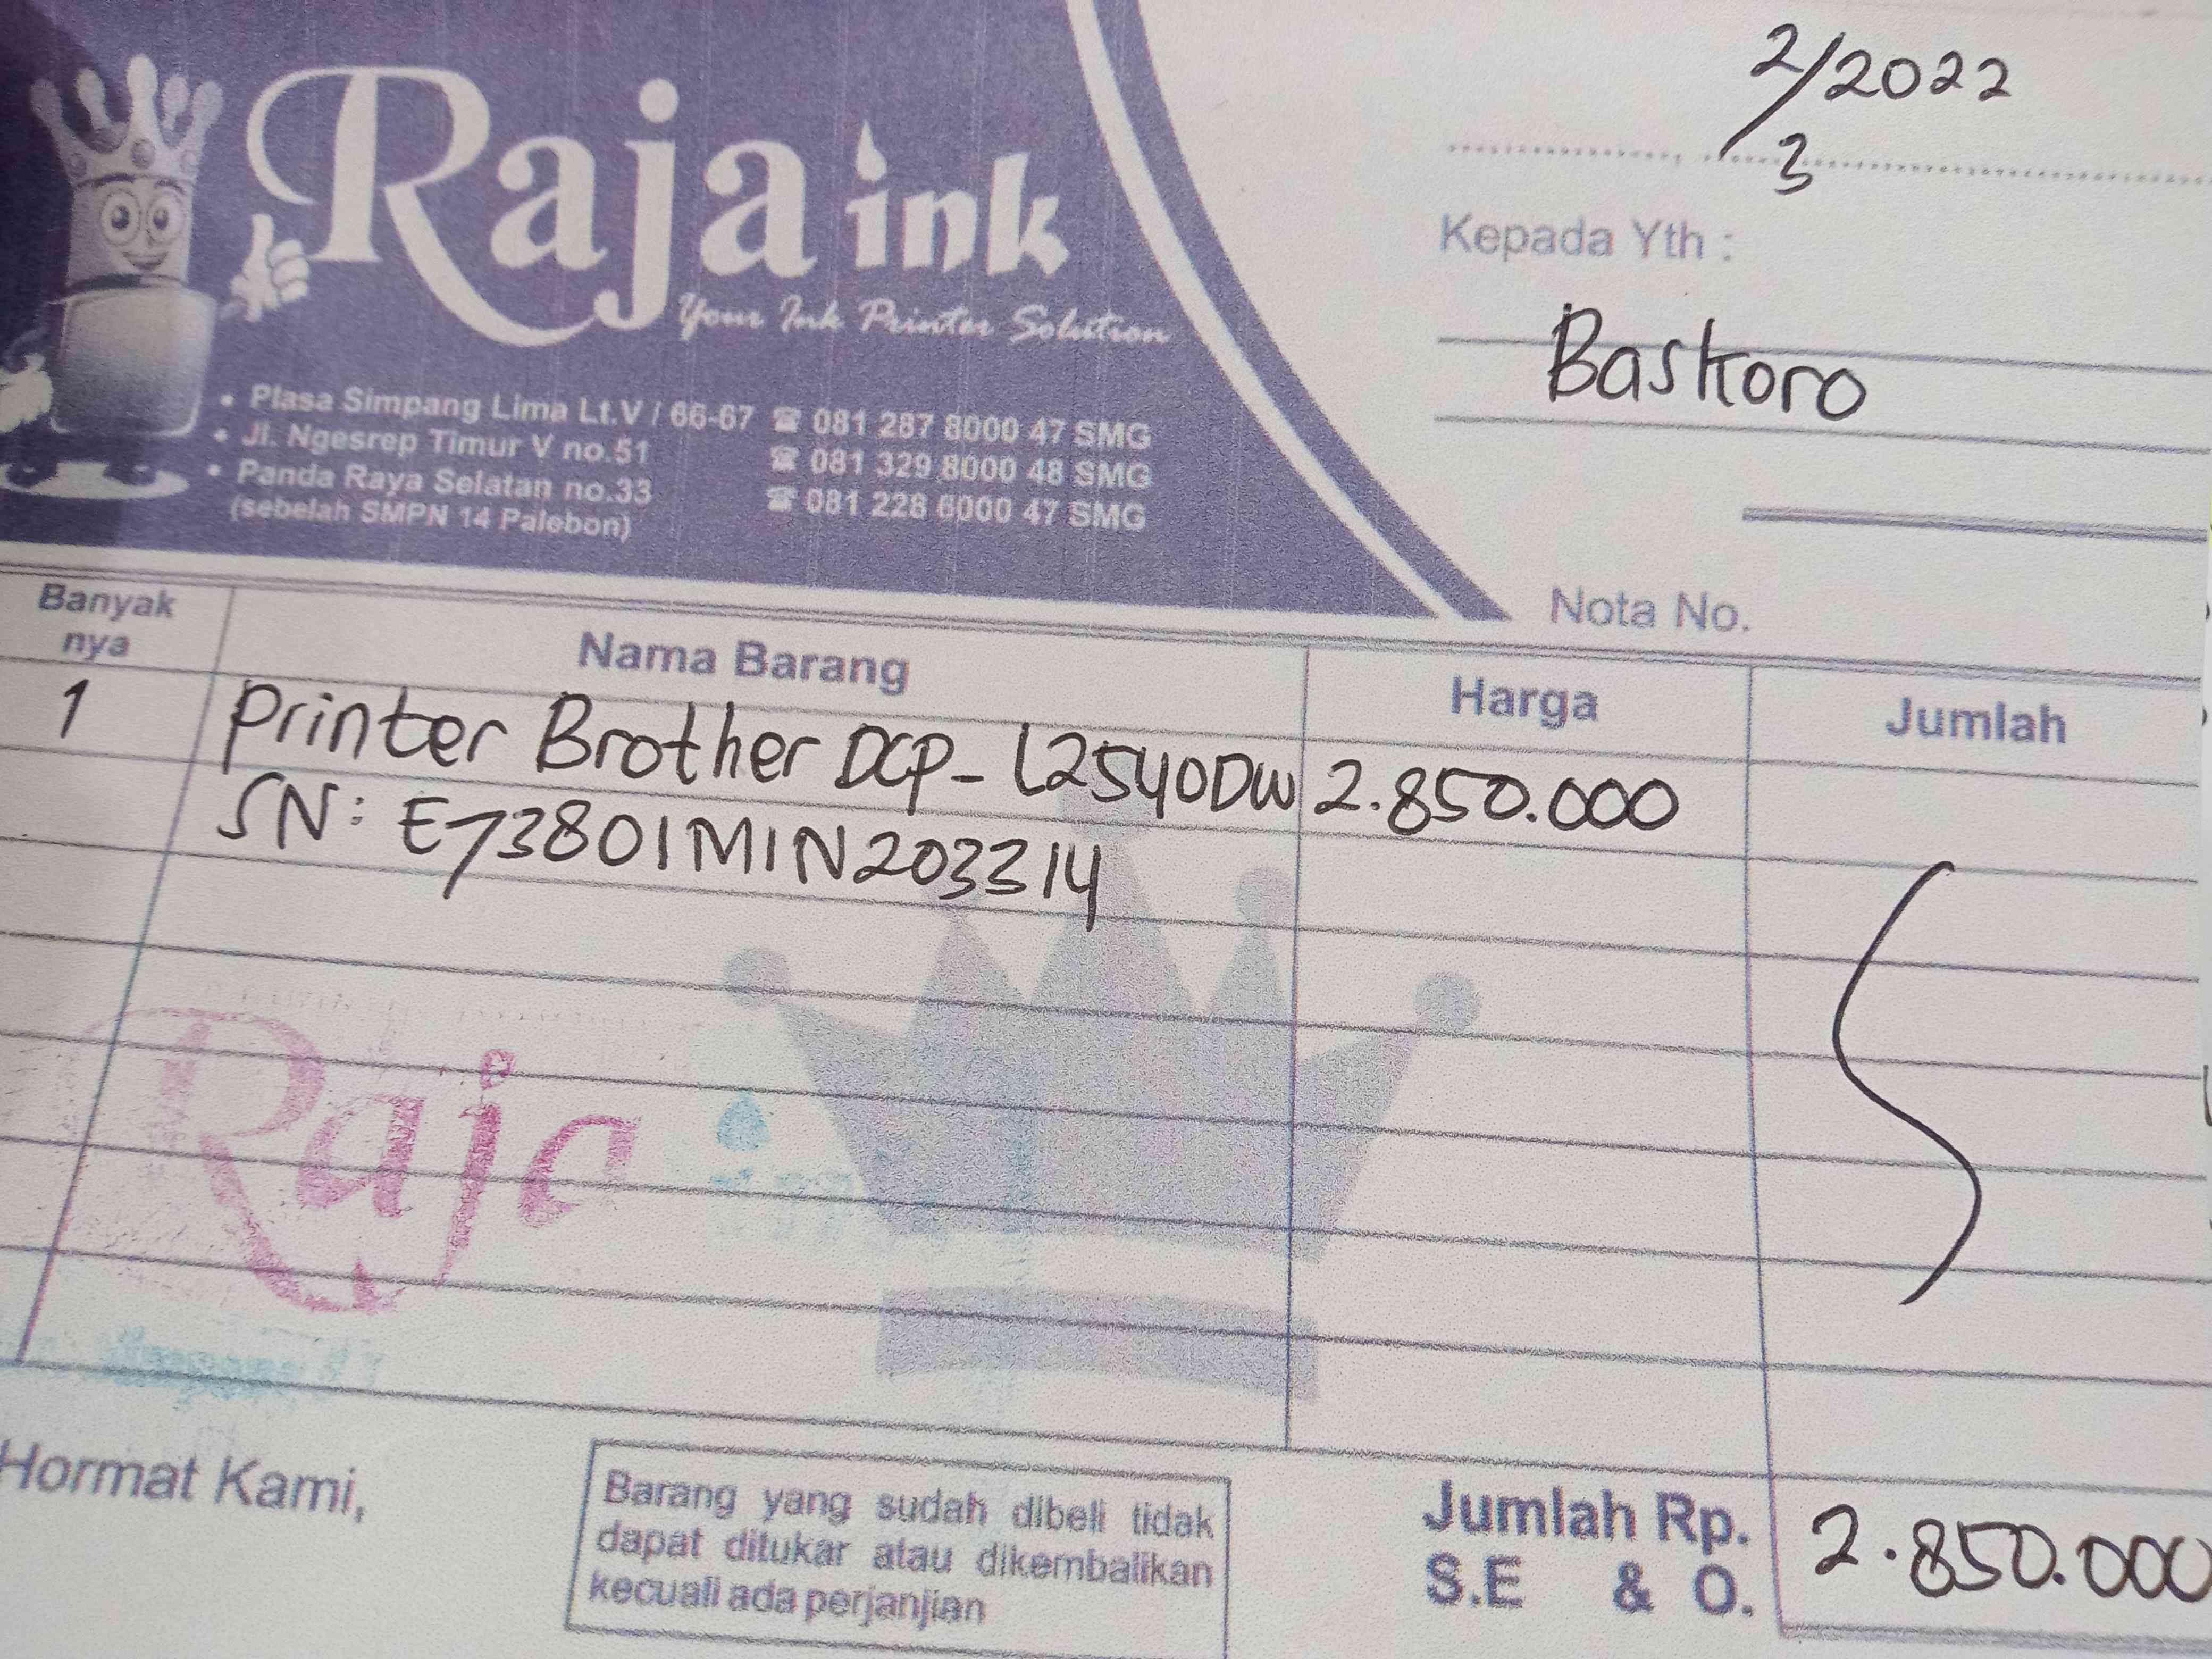 Raja ink
Your Ink Printer Solution
• Plasa Simpang Lima Lt.V / 66-67 ☎ 081 287 8000 47 SMG
• Jl. Ngesrep Timur V no.51 ☎ 081 329 8000 48 SMG
• Panda Raya Selatan no.33 ☎ 081 228 6000 47 SMG
(sebelah SMPN 14 Palebon)
2/3/2022
Kepada Yth :
Baskoro
Nota No.
Banyak nya Nama Barang Harga Jumlah
1 Printer Brother DCP-L2540DW 2.850.000
SN: E73801M1N203314
Raja
Hormat Kami,
Barang yang sudah dibeli tidak
dapat ditukar atau dikembalikan
kecuali ada perjanjian
Jumlah Rp. 2.850.000
S.E & O.